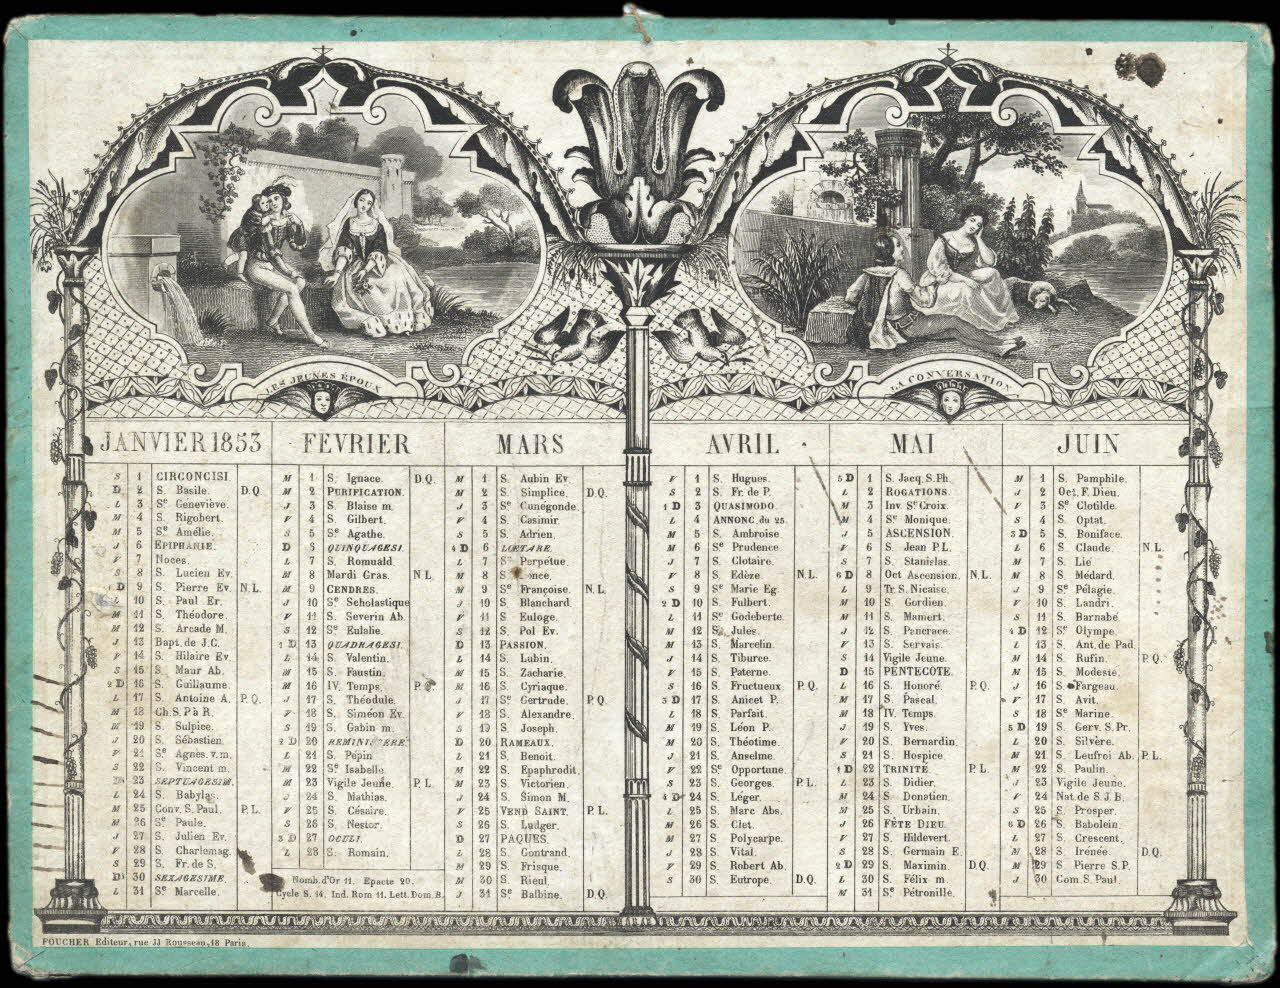 LES JEUNES ÉPOUX
LA CONVERSATION
JANVIER 1853
S 1 CIRCONCISI
D 2 S. Basile. D.Q
L 3 Se Geneviève.
M 4 S. Rigobert.
M 5 Se Amélie.
J 6 EPIPHANIE.
V 7 Noces.
S 8 S. Lucien Ev.
1 D 9 S. Pierre Ev. N.L.
L 10 S. Paul Er.
M 11 S. Théodore.
M 12 S. Arcade M.
J 13 Bapt. de J.C.
V 14 S. Hilaire Ev.
S 15 S. Maur Ab.
2 D 16 S. Guillaume.
L 17 S. Antoine A. P.Q.
M 18 Ch. S. P. à R.
M 19 S. Sulpice.
J 20 S. Sébastien.
V 21 Se Agnès. v.m.
S 22 S. Vincent m.
D 23 SEPTUAGESIM.
L 24 S. Babylas.
M 25 Conv. S. Paul. P.L.
M 26 Se Paule.
J 27 S. Julien Ev.
V 28 S. Charlemag.
S 29 S. Fr. de S.
D 30 SEXAGESIME.
L 31 Se Marcelle.
FÉVRIER
M 1 S. Ignace. D.Q.
M 2 PURIFICATION.
J 3 S. Blaise m.
V 4 S. Gilbert.
S 5 Se Agathe.
D 6 QUINQUAGESI.
L 7 S. Romuald.
M 8 Mardi Gras. N.L.
M 9 CENDRES.
J 10 Se Scholastique
V 11 S. Severin Ab.
S 12 Se Eulalie.
1 D 13 QUADRAGESI.
L 14 S. Valentin.
M 15 S. Faustin.
M 16 IV. Temps. P.Q.
J 17 S. Théodule.
V 18 S. Siméon Ev.
S 19 S. Gabin m.
2 D 20 REMINISCERE.
L 21 S. Pépin
M 22 Se Isabelle.
M 23 Vigile Jeune. P.L.
J 24 S. Mathias.
V 25 S. Césaire.
S 26 S. Nestor.
3 D 27 OCULI.
L 28 S. Romain.
Nomb. d'Or 11. Epacte 20.
Cycle S. 14. Ind. Rom 11. Lett. Dom. B.
MARS
M 1 S. Aubin Ev.
M 2 S. Simplice. D.Q.
J 3 Se Cunégonde.
V 4 S. Casimir.
S 5 S. Adrien.
4 D 6 LŒTARE.
L 7 Se Perpétue.
M 8 S. Ponce.
M 9 Se Françoise. N.L.
J 10 S. Blanchard.
V 11 S. Euloge.
S 12 S. Pol Ev.
D 13 PASSION.
L 14 S. Lubin.
M 15 S. Zacharie.
M 16 S. Cyriaque.
J 17 Se Gertrude. P.Q.
V 18 S. Alexandre.
S 19 S. Joseph.
D 20 RAMEAUX.
L 21 S. Benoit.
M 22 S. Epaphrodit.
M 23 S. Victorien.
J 24 S. Simon M.
V 25 VEND SAINT. P.L.
S 26 S. Ludger.
D 27 PAQUES.
L 28 S. Gontrand.
M 29 S. Frisque.
M 30 S. Rieul.
J 31 Se Balbine. D.Q.
AVRIL
V 1 S. Hugues.
S 2 S. Fr. de P.
1 D 3 QUASIMODO
L 4 ANNONC. du 25.
M 5 S. Ambroise
M 6 Se Prudence
J 7 S. Clotaire.
V 8 S. Edèze. N.L.
S 9 Se Marie Eg.
2 D 10 S. Fulbert.
L 11 Se Godeberte.
M 12 S. Jules.
M 13 S. Marcelin.
J 14 S. Tiburce.
V 15 S. Paterne.
S 16 S. Fructueux. P.Q.
3 D 17 S. Anicet P.
L 18 S. Parfait.
M 19 S. Léon P.
M 20 S. Théotime.
J 21 S. Anselme.
V 22 Se Opportune.
S 23 S. Georges. P.L.
4 D 24 S. Léger.
L 25 S. Marc Abs.
M 26 S. Clet.
M 27 S. Polycarpe.
J 28 S. Vital.
V 29 S. Robert Ab.
S 30 S. Eutrope. D.Q.
MAI
5 D 1 S. Jacq. S. Ph.
L 2 ROGATIONS.
M 3 Inv. Se Croix.
M 4 Se Monique.
J 5 ASCENSION.
V 6 S. Jean P.L.
S 7 S. Stanislas.
6 D 8 Oct Ascension. N.L.
L 9 Tr. S. Nicaise.
M 10 S. Gordien.
M 11 S. Mamert.
J 12 S. Pancrace.
V 13 S. Servais.
S 14 Vigile Jeune.
D 15 PENTECOTE.
L 16 S. Honoré. P.Q.
M 17 S. Pascal.
M 18 IV. Temps.
J 19 S. Yves.
V 20 S. Bernardin.
S 21 S. Hospice
1 D 22 TRINITE P.L.
L 23 S. Didier.
M 24 S. Donatien.
M 25 S. Urbain.
J 26 FÊTE DIEU.
V 27 S. Hildevert.
S 28 S. Germain E.
2 D 29 S. Maximin. D.Q.
L 30 S. Félix m.
M 31 Se Pétronille.
JUIN
M 1 S. Pamphile.
J 2 Oct. F. Dieu.
V 3 Se Clotilde.
S 4 S. Optat.
3 D 5 S. Boniface.
L 6 S. Claude. N.L.
M 7 S. Lié
M 8 S. Médard.
J 9 Se Pélagie.
V 10 S. Landri.
S 11 S. Barnabé.
4 D 12 Se Olympe.
L 13 S. Ant. de Pad.
M 14 S. Rufin. P.Q.
M 15 S. Modeste.
J 16 S. Fargeau.
V 17 S. Avit.
S 18 Se Marine.
5 D 19 S. Gerv. S. Pr.
L 20 S. Silvère.
M 21 S. Leufroi Ab. P.L.
M 22 S. Paulin.
J 23 Vigile Jeune.
V 24 Nat. de S. J. B.
S 25 S. Prosper.
6 D 26 S. Babolein.
L 27 S. Crescent.
M 28 S. Irénée. D.Q.
M 29 S. Pierre S. P.
J 30 Com. S. Paul.
FOUCHER Editeur, rue JJ Rousseau, 18 Paris.